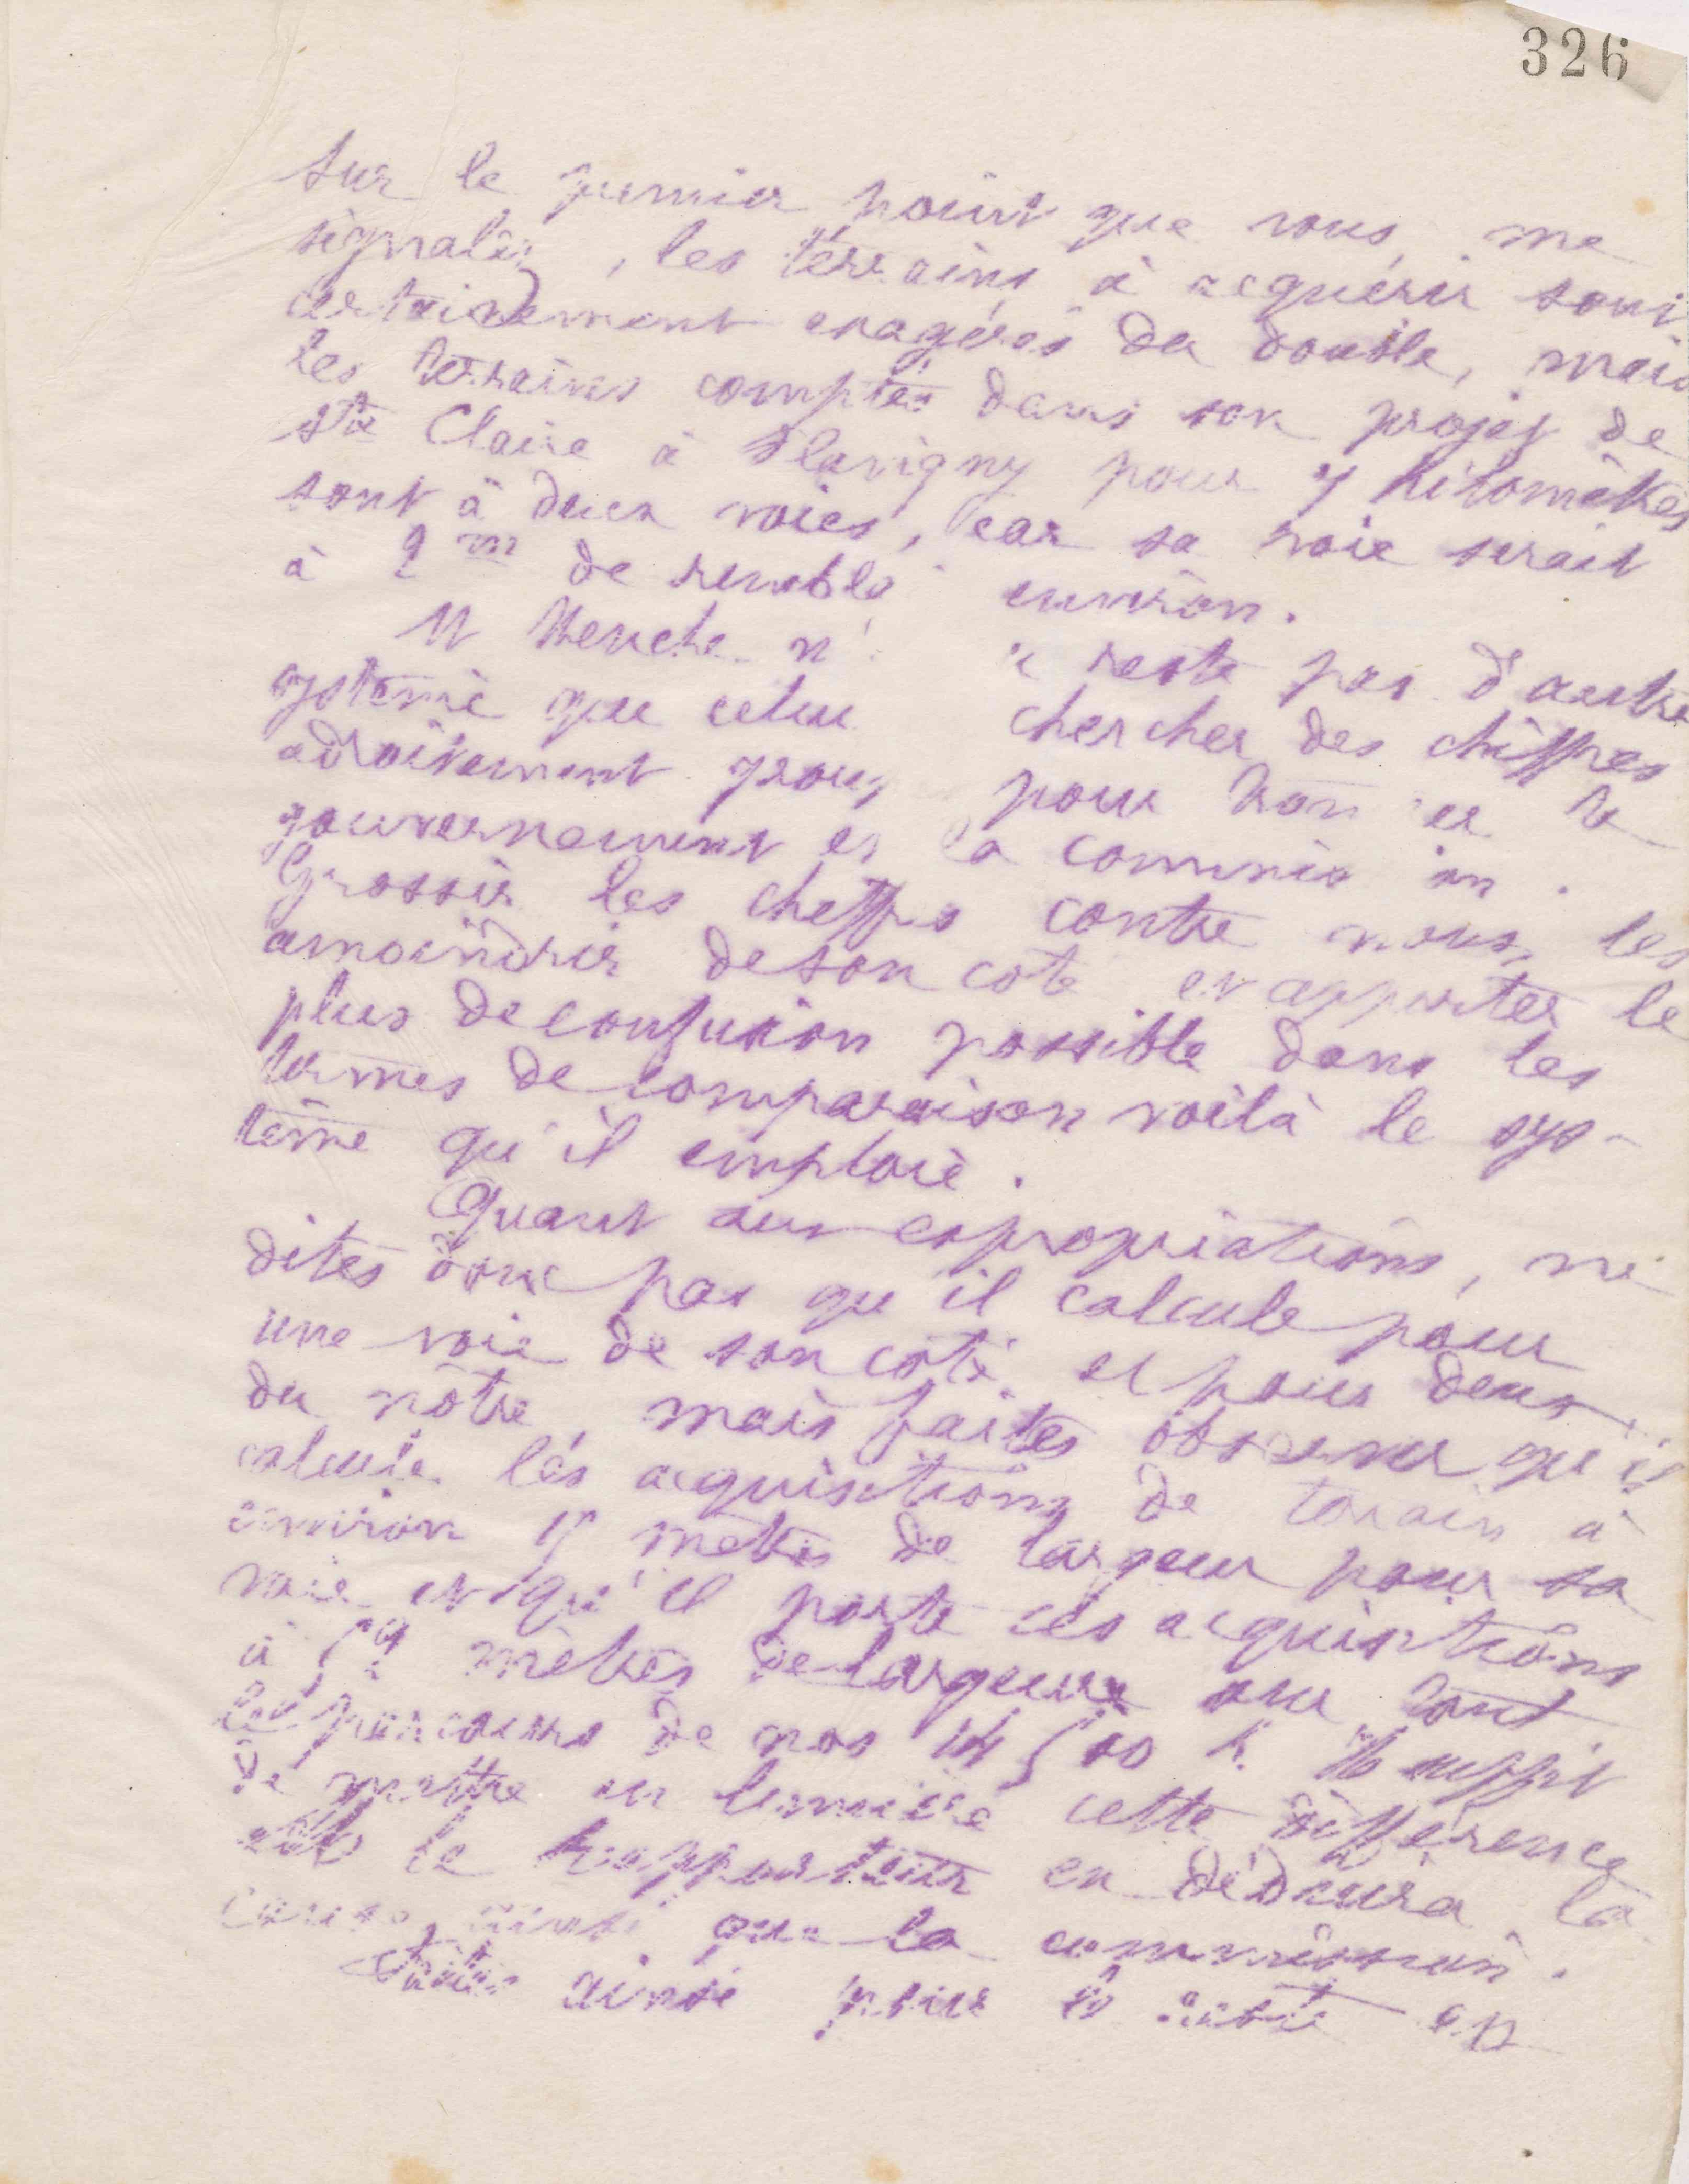 326
Sur le premier point que vous me
signalez, les terrains à acquérir sont
certainement exagérés du double, mais
les terrains comptés dans son projet de
Ste Claire à Flavigny pour 7 kilomètres
sont à deux voies, car sa voie serait
à 2 m de remblai environ.
M Henche n' reste pas d'autre
système que celui chercher des chiffres
adroitement pour le
gouvernement et la commis ion.
Grossir les cheffres contre nous, les
amoindrir de son coté et apporter le
plus de confusion possible dans les
termes de comparaison voilà le sys-
tème qu'il emploie.
Quant aux expropriations, ne
dites donc pas qu'il calcule pour
une voie de son coté et pour deux
du nôtre, mais faites observer qu'il
calcule les acquisitions de terain à
environ mètres de largeur pour sa
voie et qu'il porte ces acquisitions
à mètres de largeur sur tout
le parcours de nos 14 500 k. Il suffit
de mettre en lumière cette différence
et le rapporteur en déduira la
cause, ainsi que la commission.
Faites ainsi pour le reste et